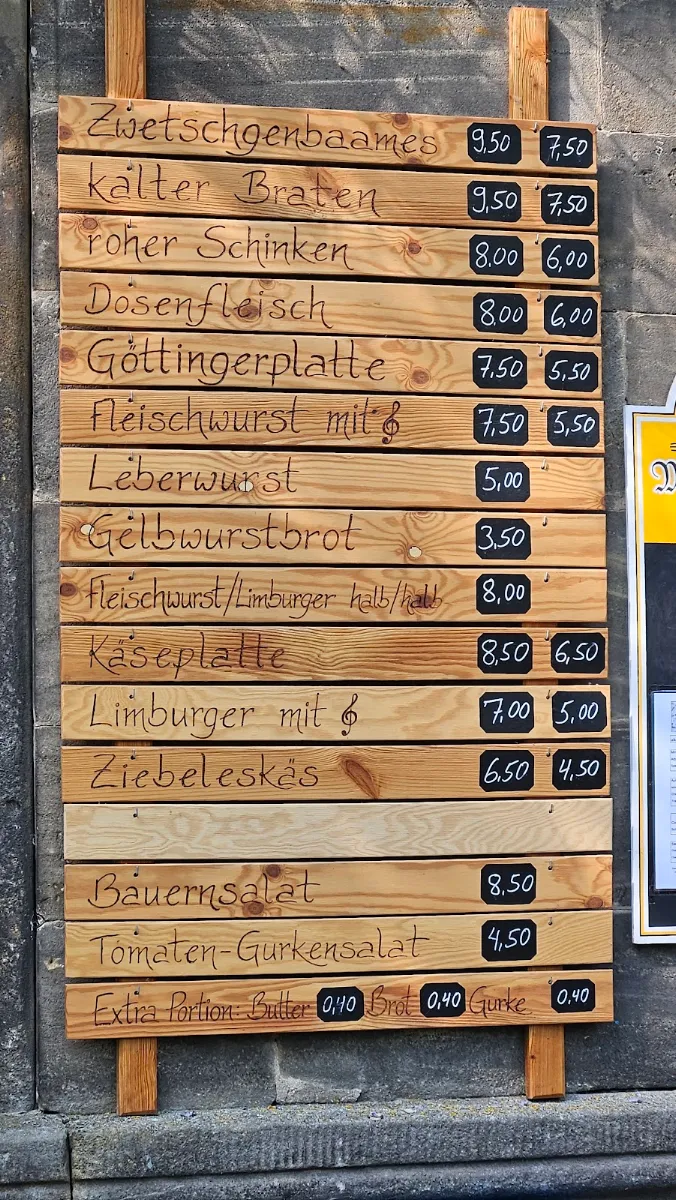 Zwetschgenbaames 9,50 7,50
kalter Braten 9,50 7,50
roher Schinken 8,00 6,00
Dosenfleisch 8,00 6,00
Göttingerplatte 7,50 5,50
Fleischwurst mit 7,50 5,50
Leberwurst 5,00
Gelbwurstbrot 3,50
Fleischwurst/Limburger halb/halb 8,00
Käseplatte 8,50 6,50
Limburger mit 7,00 5,00
Ziebeleskäs 6,50 4,50
Bauernsalat 8,50
Tomaten-Gurkensalat 4,50
Extra Portion: Butter 0,40 Brot 0,40 Gurke 0,40